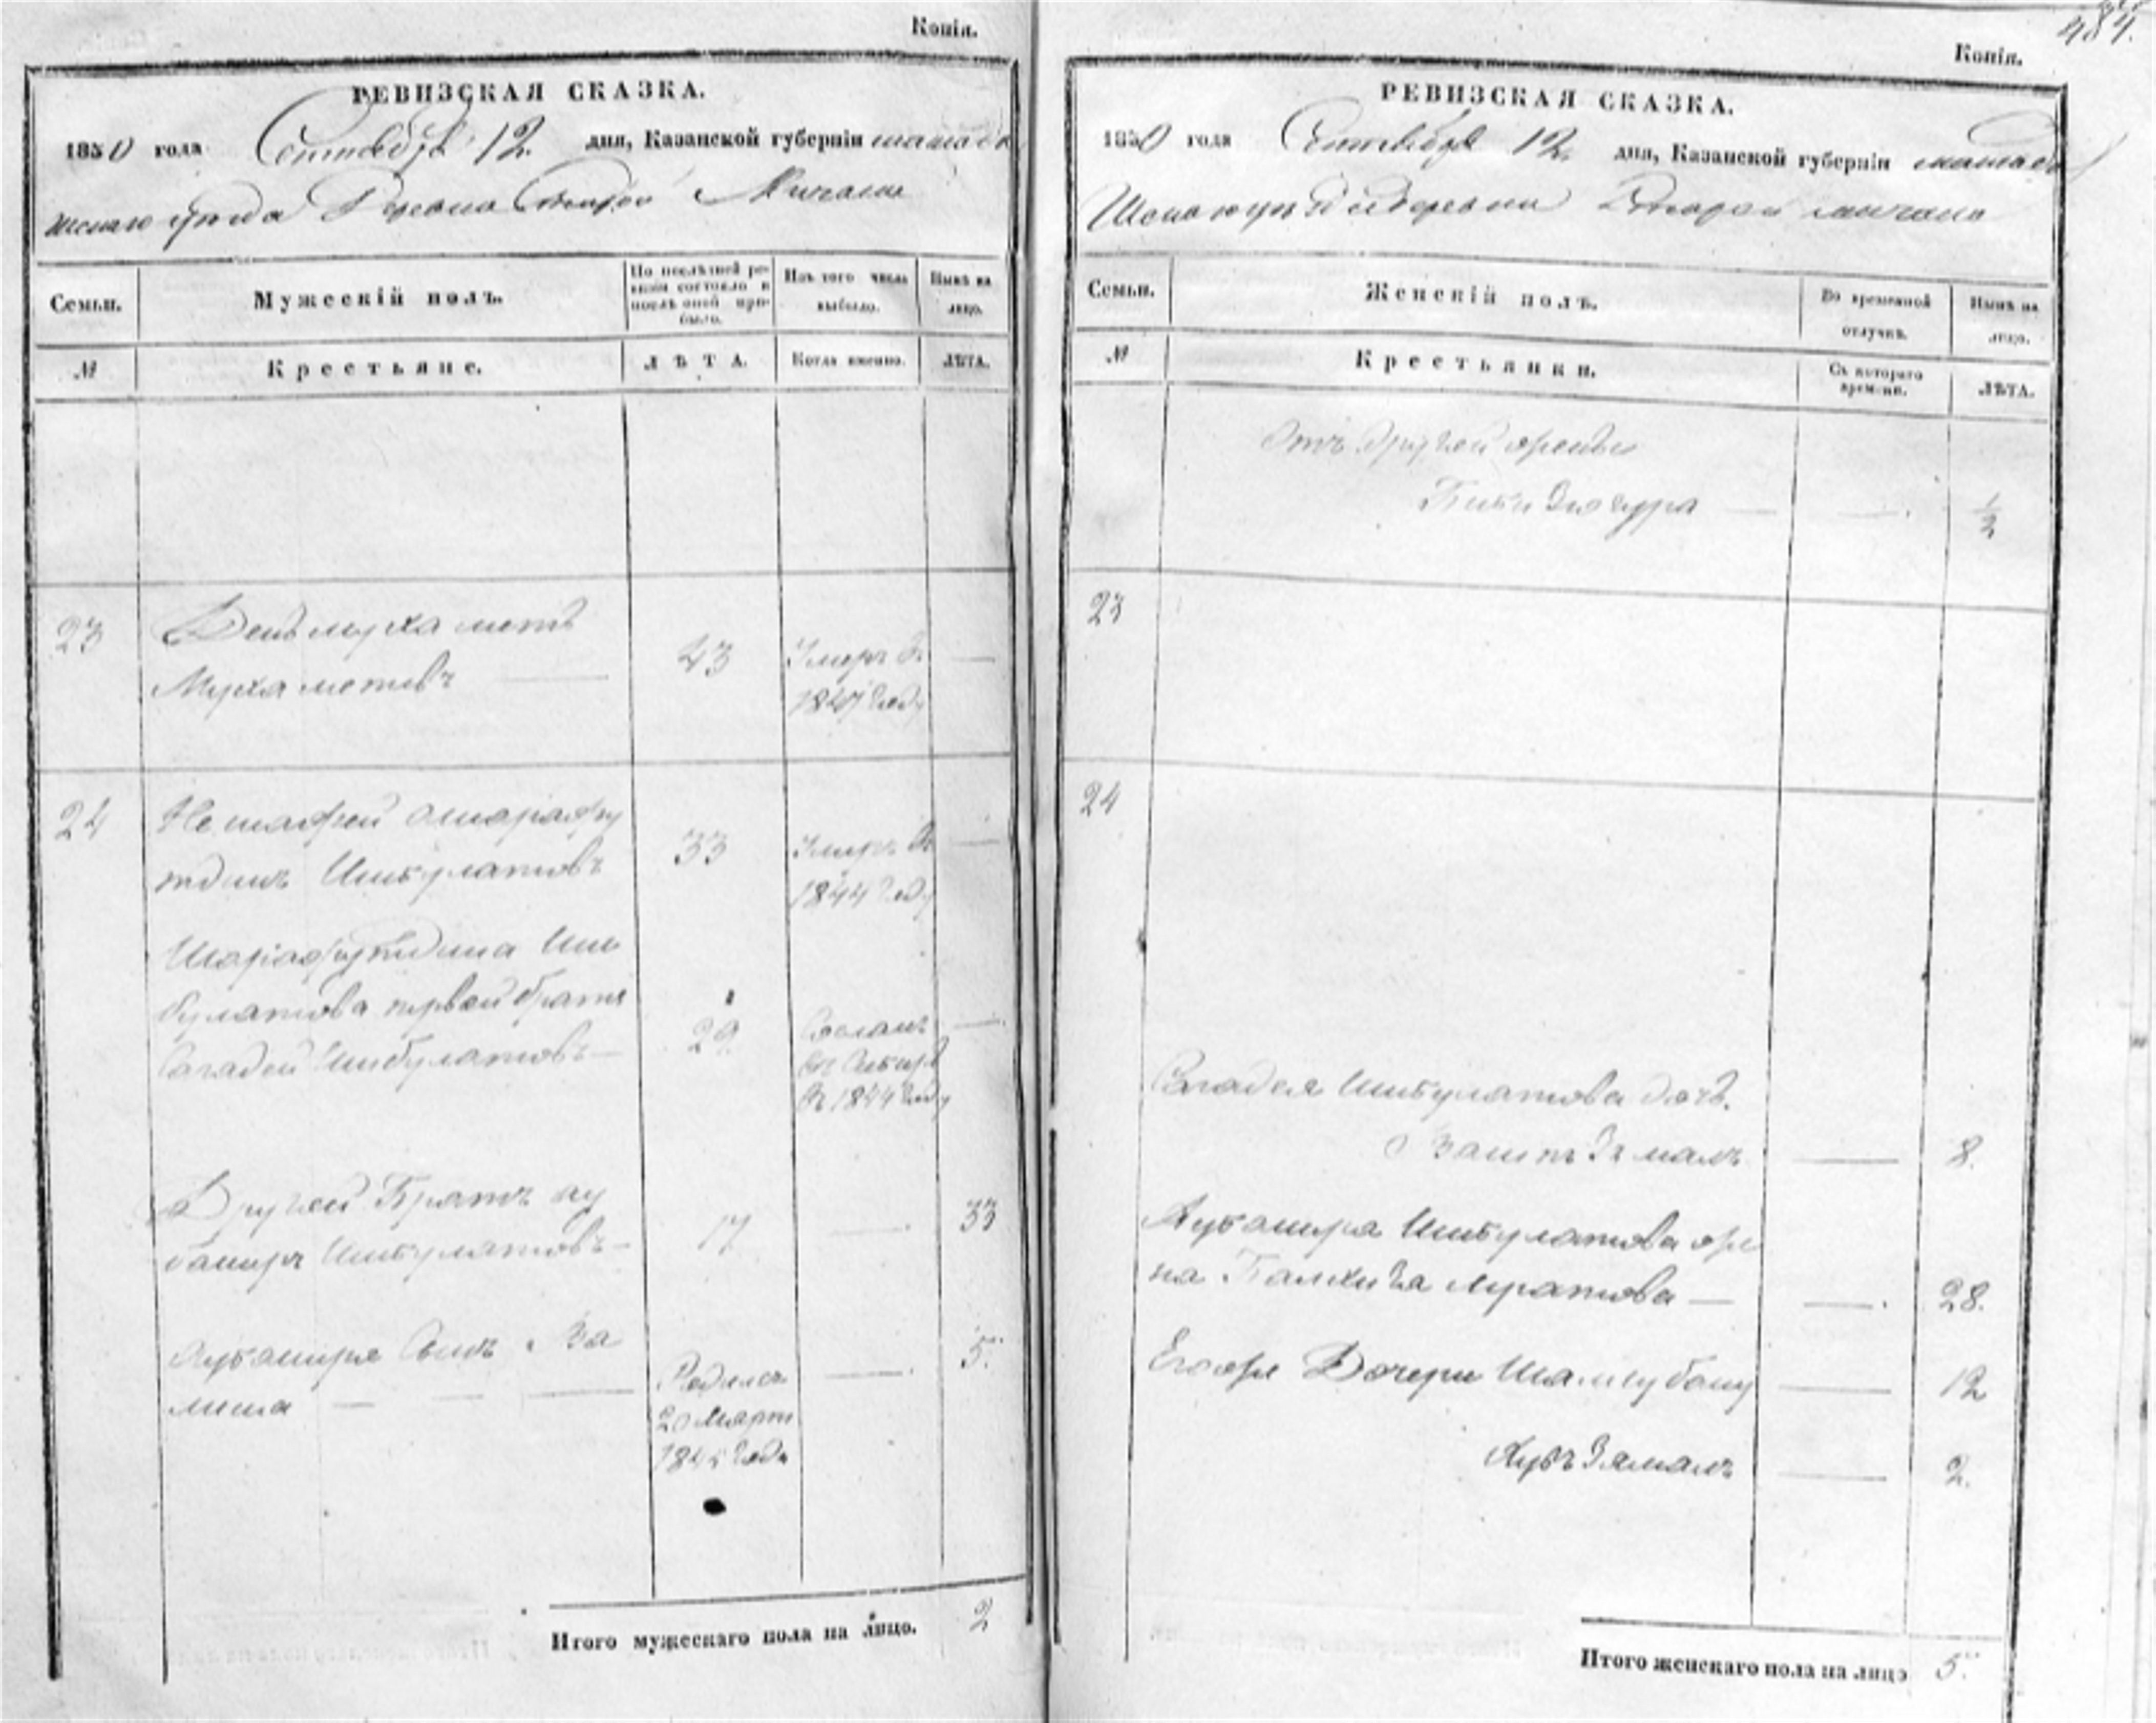 Копія.
РЕВИЗСКАЯ СКАЗКА.
1850 года Сентября 12. дня, Казанской губерніи мамады
шскаго уѣзда Деревна Второй
Семьи. Мужескій полъ. По послѣдней ревизіи состояло и послѣ оной прибыло. Изъ того числа выбыло. Нынѣ на лицо.
№ Крестьяне. ЛѢТА. Когда именно. ЛѢТА.
23 Мухаметъ
Мухаметовъ 43 Умеръ въ —
1847 году
24
тдинъ Ишбулатовъ 33 Умеръ въ —
1844 году
Шарафутдина Иш
булатова первой братъ
Сагадей Ишбулатовъ — 29 Сосланъ —
въ Сибирь
въ 1844 году
Другой Братъ ау
башръ Ишбулатовъ — 17 — 33
Аубашира Сынъ За
— — — Родился — 5.
20 Марта
184 года
Итого мужескаго пола на лицо. 2
484.
Копія.
РЕВИЗСКАЯ СКАЗКА.
1850 года Сентября 12 дня, Казанской губерніи мамады
Шскаго уѣзда деревни Второй
Семьи. Женскій полъ. Во временной отлучкѣ. Нынѣ на лицо.
№ Крестьянки. Съ котораго времени. ЛѢТА.
Отъ другой жены
Биби — — 1/2
23
24
Сагадея Ишбулатова дочь.
— 8.
Аубашира Ишбулатова же
на — — 28.
Его же Дочери Шамсубану — 12
Зямалъ — 2.
Итого женскаго пола на лицо 5.